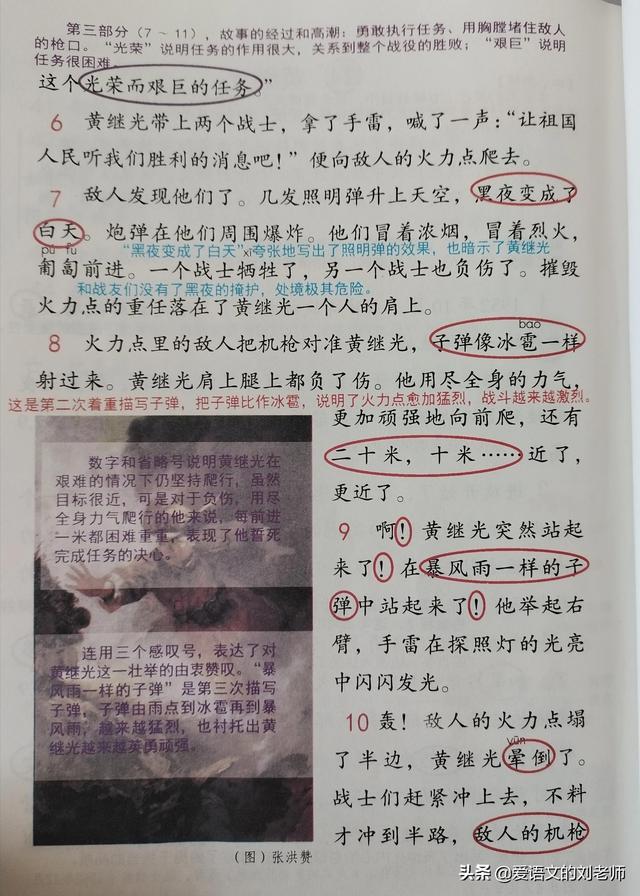 第三部分（7～11），故事的经过和高潮：勇敢执行任务、用胸膛堵住敌人
的枪口。“光荣”说明任务的作用很大，关系到整个战役的胜败；“艰巨”说明
任务很困难。
这个光荣而艰巨的任务。”
6 黄继光带上两个战士，拿了手雷，喊了一声：“让祖国
人民听我们胜利的消息吧！”便向敌人的火力点爬去。
7 敌人发现他们了。几发照明弹升上天空，黑夜变成了
白天。炮弹在他们周围爆炸。他们冒着浓烟，冒着烈火，
pú fú
“黑夜变成了白天”xì夸张地写出了照明弹的效果，也暗示了黄继光
匍匐前进。一个战士牺牲了，另一个战士也负伤了。摧毁
和战友们没有了黑夜的掩护，处境极其危险。
火力点的重任落在了黄继光一个人的肩上。
báo
8 火力点里的敌人把机枪对准黄继光，子弹像冰雹一样
射过来。黄继光肩上腿上都负了伤。他用尽全身的力气，
这是第二次着重描写子弹，把子弹比作冰雹，说明了火力点愈加猛烈，战斗越来越激烈。
更加顽强地向前爬，还有
二十米，十米……近了，
更近了。
数字和省略号说明黄继光在
艰难的情况下仍坚持爬行，虽然
目标很近，可是对于负伤，用尽
全身力气爬行的他来说，每前进
一米都困难重重，表现了他誓死
完成任务的决心。
9 啊！黄继光突然站起
来了！在暴风雨一样的子
弹中站起来了！他举起右
臂，手雷在探照灯的光亮
中闪闪发光。
连用三个感叹号，表达了对
黄继光这一壮举的由衷赞叹。“暴
风雨一样的子弹”是第三次描写
子弹，子弹由雨点到冰雹再到暴
风雨，越来越猛烈，也衬托出黄
继光越来越英勇顽强。
10 轰！敌人的火力点塌
yūn
了半边，黄继光晕倒了。
战士们赶紧冲上去，不料
才冲到半路，敌人的机枪
（图）张洪赞
头条 @爱语文的刘老师